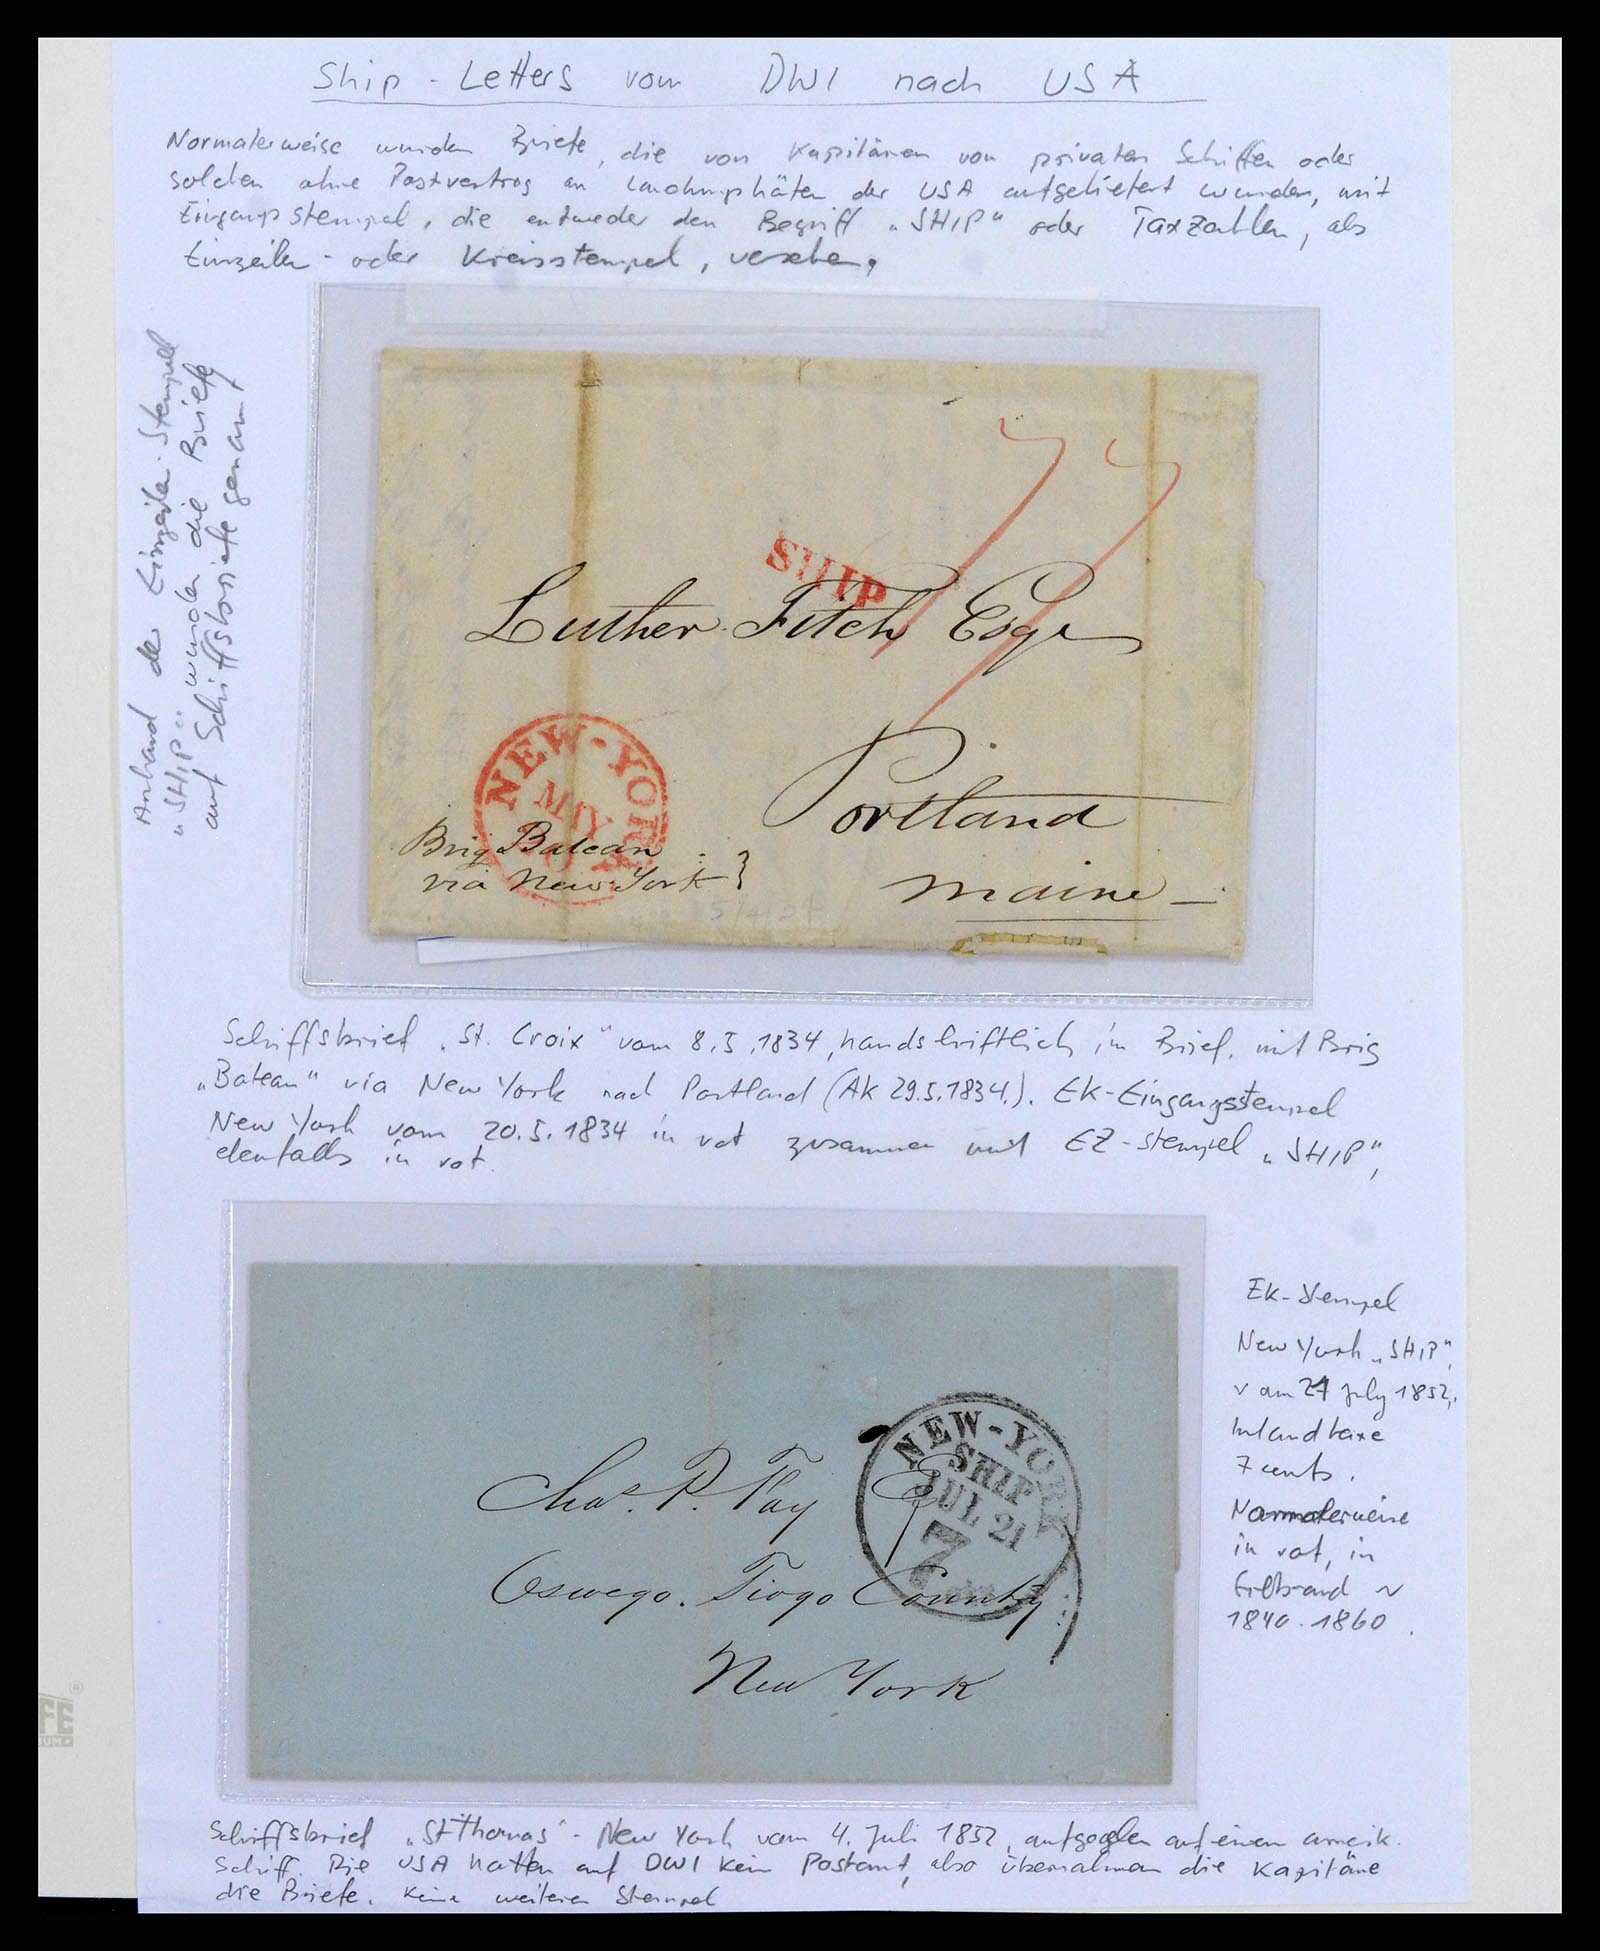 Ship - Letters vom DWI nach USA
Normalerweise wurden Briefe, die von Kapitänen von privaten Schiffen oder
solchen ohne Postvertrag an Landungshäfen der USA aufgeliefert wurden, mit
Eingangsstempel, die entweder den Begriff „SHIP“ oder Taxzahlen, als
Einzeiler- oder Kreisstempel, versehen.
Anhand der Einzeiler-Stempel
„SHIP“ wurden die Briefe
auf Schiffsbriefe genannt
SHIP
Luther Fitch Esqr
Portland
Maine
NEW-YORK
MAY
Brig Batean
via New York
Schiffsbrief „St. Croix“ vom 8.5.1834, handschriftlich im Brief, mit Brig
„Batean“ via New York nach Portland (AK 29.5.1834.). EK-Eingangsstempel
New York vom 20.5.1834 in rot zusammen mit EZ-Stempel „SHIP“,
ebenfalls in rot.
NEW-YORK
SHIP
JUL 21
7
Chas. P. Fay E
Oswego. Tiogo County
New York
EK-Stempel
New York „SHIP“,
vom 21 July 1852,
Inlandtaxe
7 cents.
Normalerweise
in rot, in
Gebrauch ~
1840-1860.
Schiffsbrief „St Thomas“ - New York vom 4. Juli 1852, aufgegeben auf einem amerik.
Schiff. Die USA hatten auf DWI kein Postamt, also übernahmen die Kapitäne
die Briefe. Keine weiteren Stempel
FE
BUM